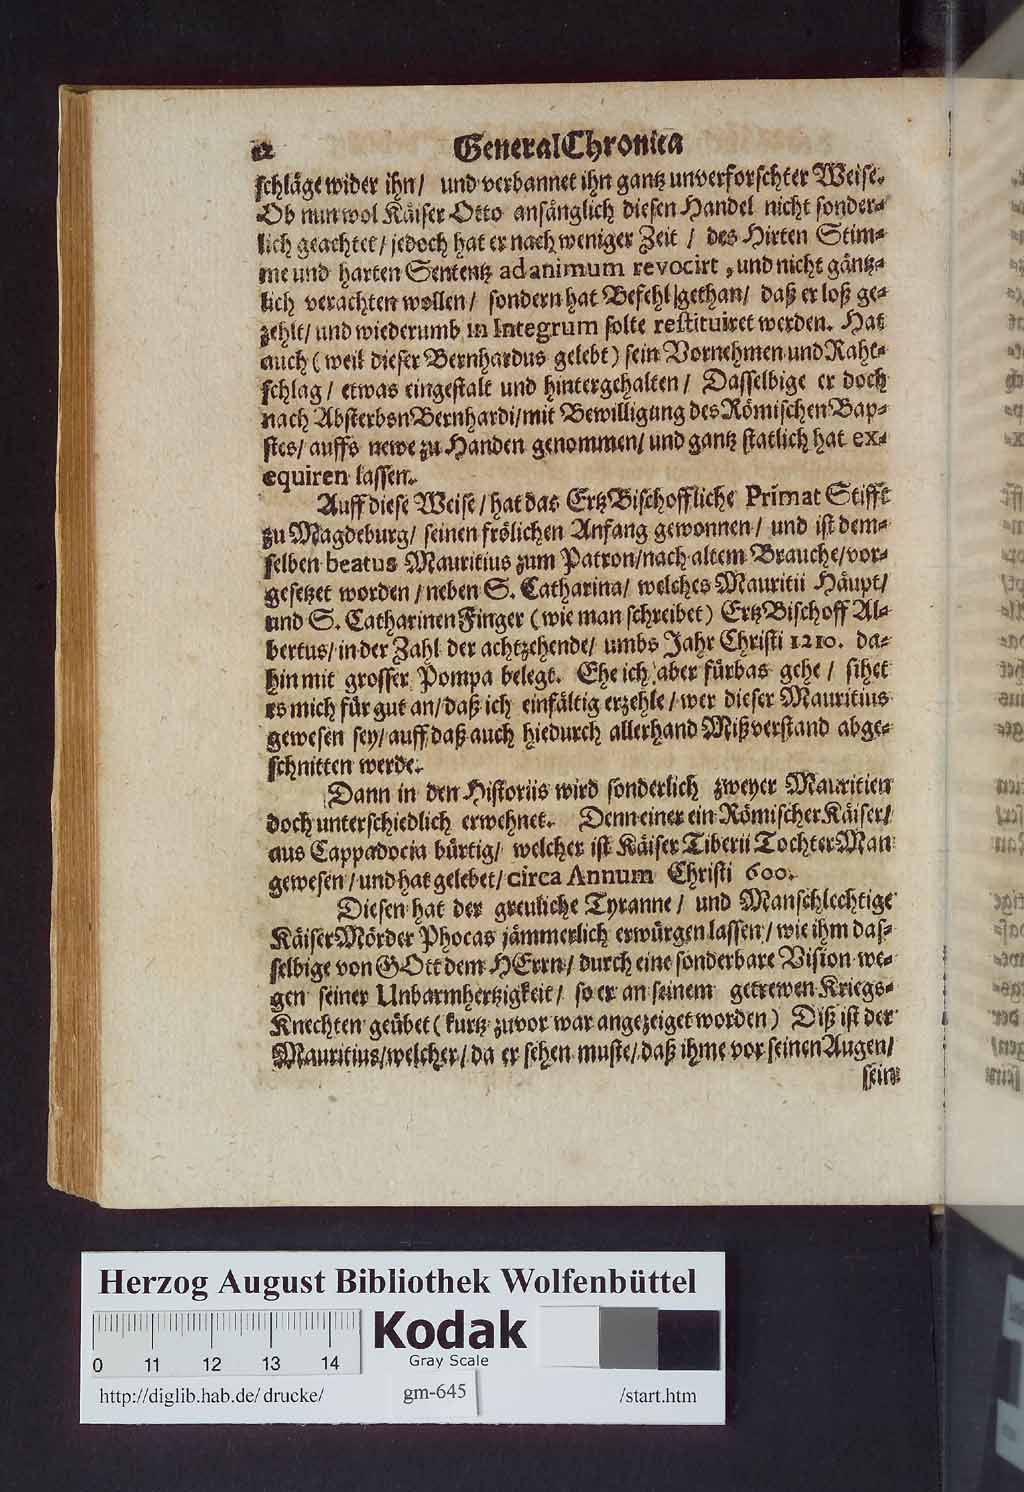 12 General Chronica
schläge wider ihn/ und verbannet ihn gantz unverforschter Weise.
Ob nun wol Käiser Otto anfänglich diesen Handel nicht sonder-
lich geachtet/ jedoch hat er nach weniger Zeit / des Hirten Stim-
me und harten Sententz ad animum revocirt, und nicht gäntz-
lich verachten wollen/ sondern hat Befehl gethan/ daß er loß ge-
zehlt/ und wiederumb in Integrum solte restituiret werden. Hat
auch (weil dieser Bernhardus gelebt) sein Vornehmen und Raht-
schlag/ etwas eingestalt und hintergehalten/ Dasselbige er doch
nach Absterben Bernhardi/ mit Bewilligung des Römischen Bap-
stes/ auffs newe zu Handen genommen/ und gantz statlich hat ex-
equiren lassen.
Auff diese Weise/ hat das Ertz Bischoffliche Primat Stifft
zu Magdeburg/ seinen frölichen Anfang gewonnen/ und ist dem-
selben beatus Mauritius zum Patron/ nach altem Brauche/ vor-
gesetzet worden/ neben S. Catharina/ welches Mauritii Häupt/
und S. Catharinen Finger (wie man schreibet) Ertz Bischoff Al-
bertus/ in der Zahl der achtzehende/ umbs Jahr Christi 1210. da-
hin mit grosser Pompa belegt. Ehe ich aber fürbas gehe/ sihet
es mich für gut an/ daß ich einfältig erzehle/ wer dieser Mauritius
gewesen sey/ auff daß auch hiedurch allerhand Mißverstand abge-
schnitten werde.
Dann in den Historiis wird sonderlich zweyer Mauritien
doch unterschiedlich erwehnet. Denn einer ein Römischer Käiser/
aus Cappadocia bürtig/ welcher ist Käiser Tiberii Tochter Man
gewesen/ und hat gelebet/ circa Annum Christi 600.
Diesen hat der greuliche Tyranne/ und Manschlechtige
Käiser Mörder Phocas jämmerlich erwürgen lassen/ wie ihm das-
selbige von GOtt dem HErrn/ durch eine sonderbare Vision we-
gen seiner Unbarmhertzigkeit/ so er an seinem getrewen Kriegs-
Knechten geübet (kurtz zuvor war angezeiget worden) Diß ist der
Mauritius/ welcher/ da er sehen muste/ daß ihme vor seinen Augen/
sein
Herzog August Bibliothek Wolfenbüttel
0 11 12 13 14
Kodak
Gray Scale
http://diglib.hab.de/drucke/ gm-645 /start.htm